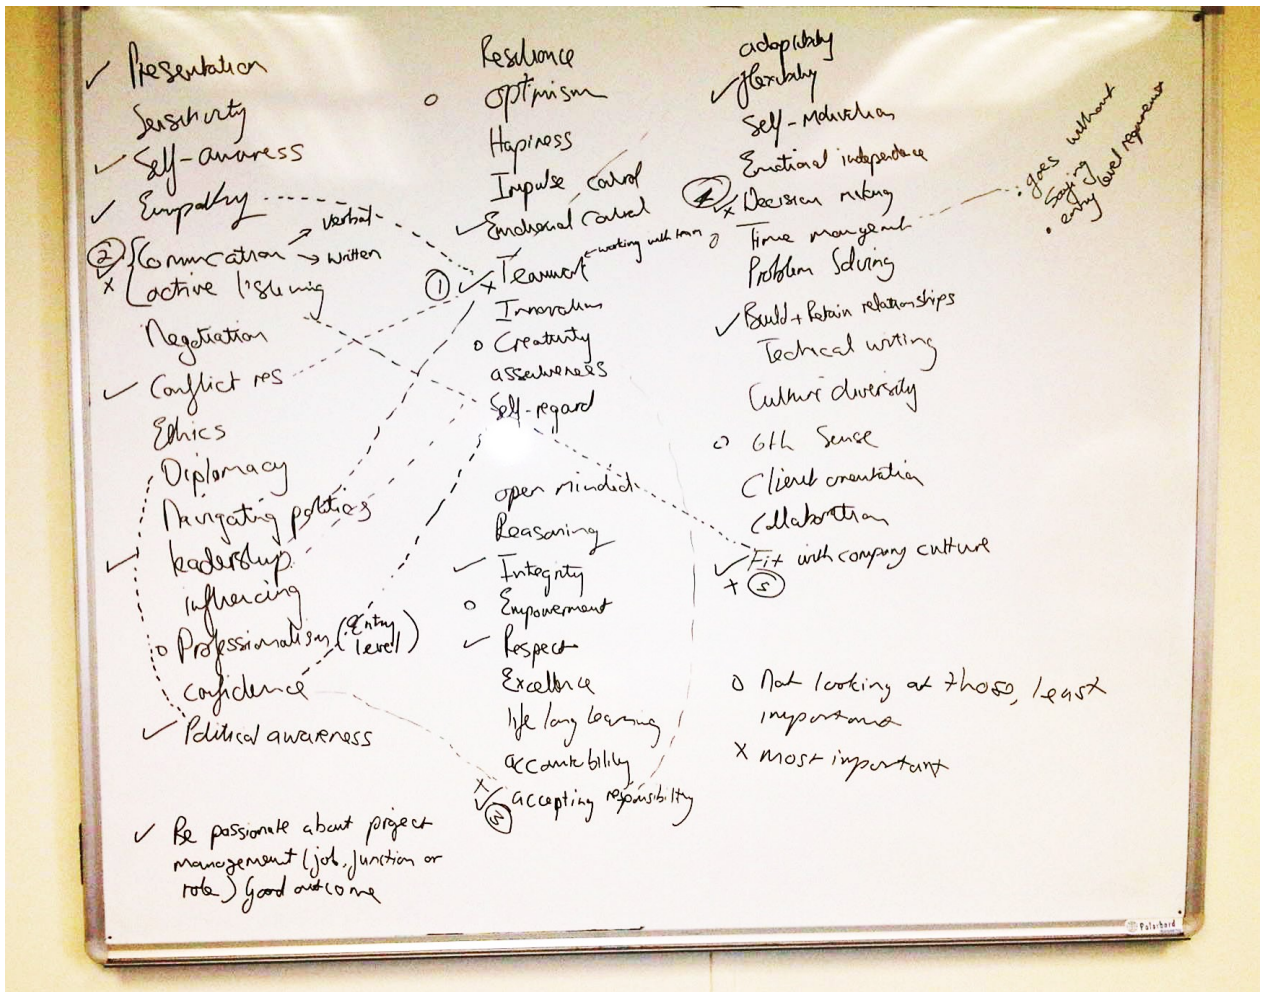 ✓ Presentation
Sensitivity
✓ Self-awaress
✓ Empathy
verbal
② { Communication
written
✓ x active listening
Negotiation
✓ Conflict res
Ethics
Diplomacy
Navigating politics
✓ leadership
influencing
o Professionalism (Entry level)
confidence
✓ Political awareness
✓ Be passionate about project
management (job, function or
role) Good outcome
Resilience
o optimism
Hapiness
Impulse control
✓ Emotional control
① ✓ x Teamwork
working with team
Innovation
o Creativity
assertiveness
Self-regard
open minded
Reasoning
✓ Integrity
o Empowerment
✓ Respect
Excellence
life long learning
accountability
x ✓ ③ accepting responsibility
adaptability
✓ flexibility
Self-motivation
Emotional independence
④ ✓ x Decision making
o Time management
Problem Solving
✓ Build + Retain relationships
Technical writing
Culture diversity
o 6th Sense
Client orientation
Collaboration
✓ Fit with company culture
x ⑤
• goes without
saying
• entry level requirement
o Not looking at those, least
important
x most important
Polarbord